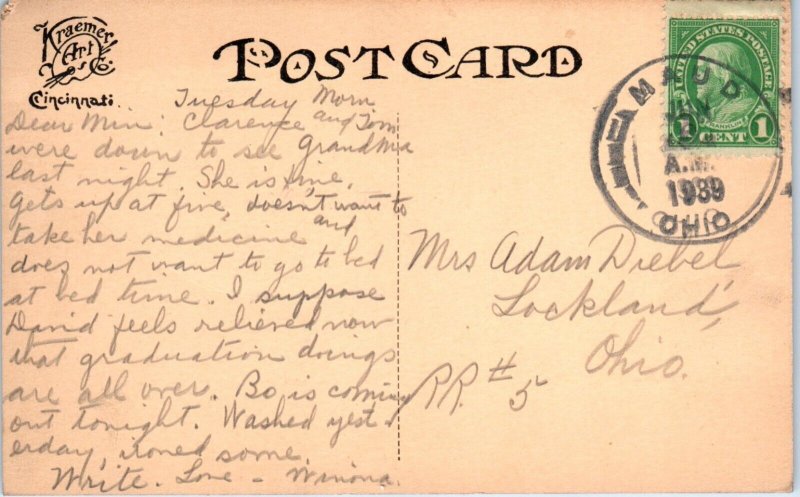 Kraemer
Art
Co.
Cincinnati.
POST CARD
UNITED STATES POSTAGE
FRANKLIN
1 CENT 1
MAUD
JUN
A.M.
1939
OHIO
Tuesday Morn
Dear Min: Clarence and Tom
were down to see Grandma
last night. She is fine,
gets up at five, doesn't want to
take her medicine and
does not want to go to bed
at bed time. I suppose
David feels relieved now
that graduation doings
are all over. Bo is coming
out tonight. Washed yest
erday, ironed some.
Write. Love - Winona.
Mrs Adam Diebel
Lockland,
Ohio.
RR. # 5